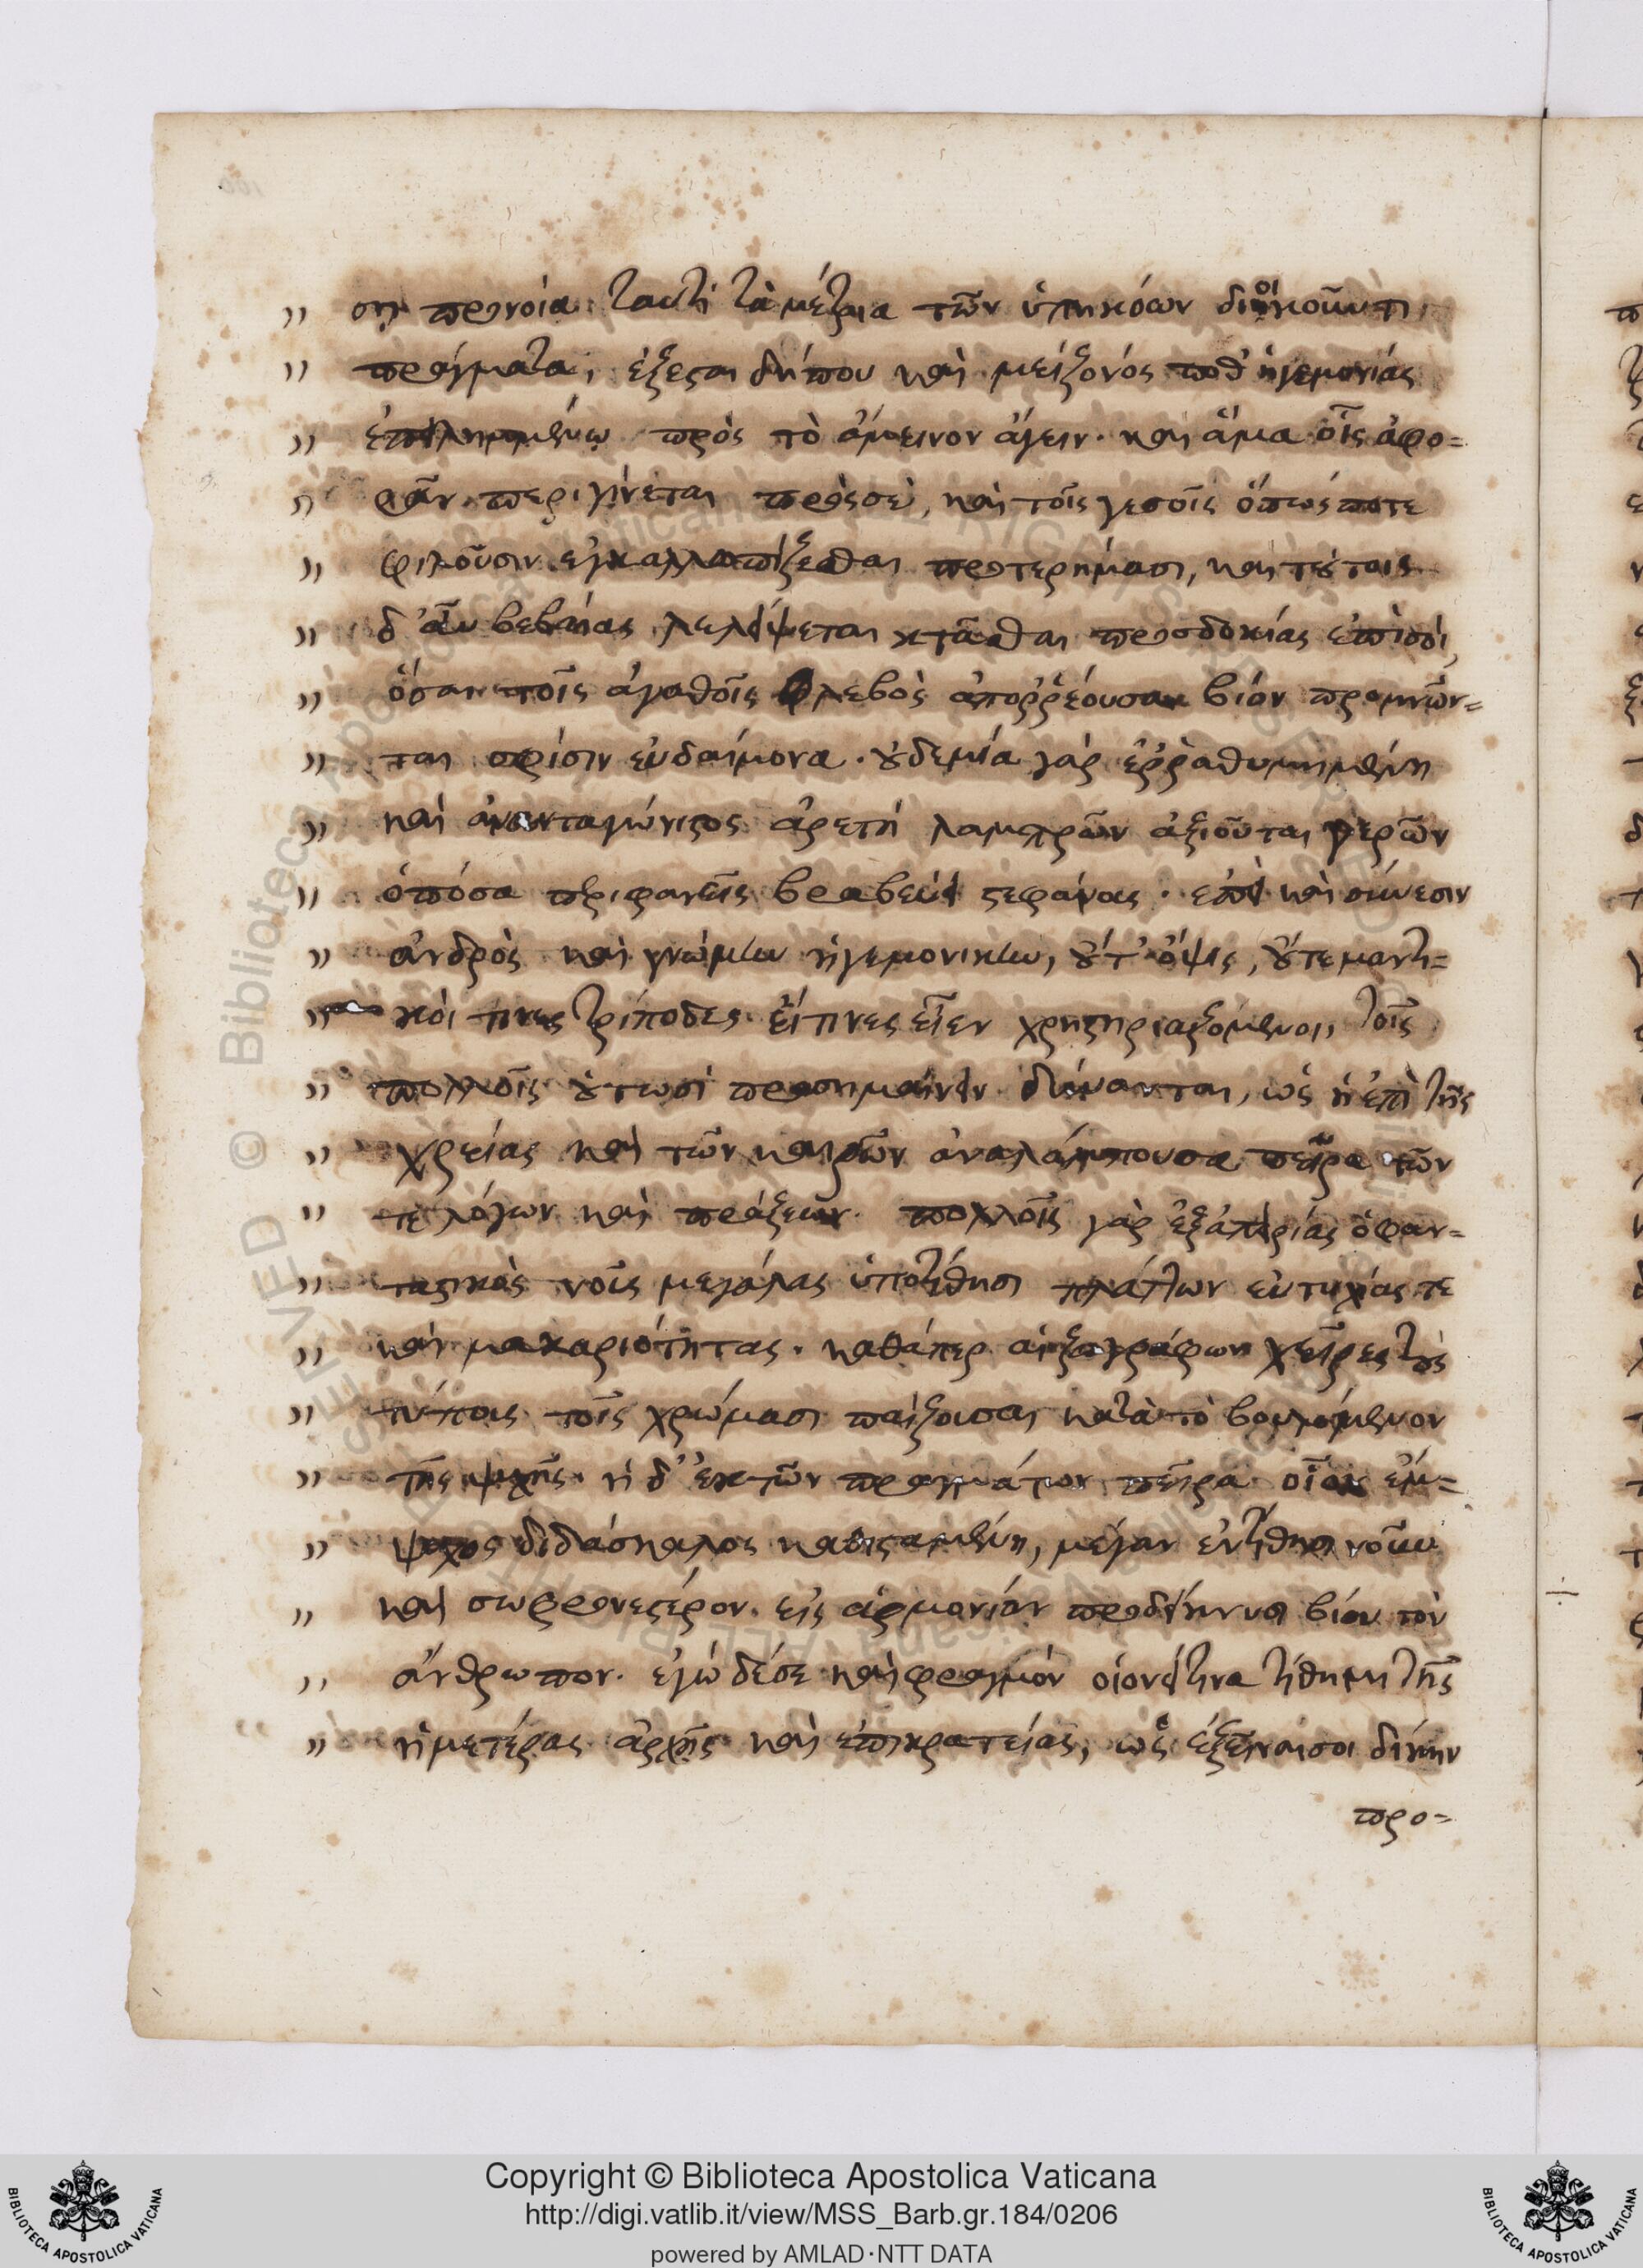 „ ση προνοία ταυτὶ τὰ μέτρια τῶν ὑπηκόων διοικοῦντι
„ πράγματα, ἐξέσται δήπου καὶ μείζονός ποθ' ἡγεμονίας
„ ἐπειλημμένῳ πρὸς τὸ ἄμεινον ἄγειν. καὶ ἅμα οἷς ἀφο=
„ ρᾶν περιγίνεται πρὸς σὲ, καὶ τοῖς γε σοῖς ὅπως ποτε
„ φιλοῦσιν ἐγκαλλωπίζεσθαι προτερήμασι, καὶ τούτοις
„ δ' οὖν βεβαίας λελείψεται κτᾶσθαι προσδοκίας ἐπὶ σοὶ,
„ ὅσαι τοῖς ἀγαθοῖς φλεβὸς ἀποῤῥέουσαι βίον προμνῶν=
„ ται σφίσιν εὐδαίμονα. οὐδεμία γὰρ ἐῤῥαθυμημένη
„ καὶ ἀνανταγώνιστος ἀρετὴ λαμπρῶν ἀξιοῦται γερῶν
„ ὁπόσα περιφανεῖς βραβεύει στεφάνους. ἐπεὶ καὶ σύνεσιν
„ ἀνδρὸς καὶ γνώμην ἡγεμονικὴν, οὔτ' ὄψις, οὔτε μαντι=
„ κοί τινες τρίποδες εἴ τινες εἶεν χρηστηριαζόμενοι, τοῖς
„ πολλοῖς οὑτωσὶ προσημαίνειν δύνανται, ὡς ἡ ἐπὶ τῆς
„ χρείας καὶ τῶν καιρῶν ἀναλάμπουσα πεῖρα τῶν
„ τε λόγων καὶ πράξεων. πολλοῖς γὰρ ἐξ ἀπειρίας ὁ φαν=
„ ταστικὸς νοῦς μεγάλας ὑποτίθησι πλάττων εὐτυχίας τε
„ καὶ μακαριότητας. καθάπερ αἱ ζωγράφων χεῖρες τοῖς
„ τύποις τοῖς χρώμασι παίζουσαι κατὰ τὸ βουλόμενον
„ τῆς ψυχῆς. ἡ δ' ἐκ τῶν πραγμάτων πεῖρα οἷον ἔμ=
„ ψυχος διδάσκαλος καθισταμένη, μέγαν ἐντίθησι νοῦν
„ καὶ σωφρονέστερον εἰς ἁρμονίαν προδείκνυσι βίου τὸν
„ ἄνθρωπον. ἐγὼ δέ σε καὶ φραγμὸν οἱονεί τινα τίθημι τῆς
„ ἡμετέρας ἀρχῆς καὶ ἐπικρατείας, ὡς ἐξεῖναί σοι δίκην
προ=
Copyright © Biblioteca Apostolica Vaticana
http://digi.vatlib.it/view/MSS_Barb.gr.184/0206
powered by AMLAD·NTT DATA
BIBLIOTECA APOSTOLICA VATICANA
BIBLIOTECA APOSTOLICA VATICANA